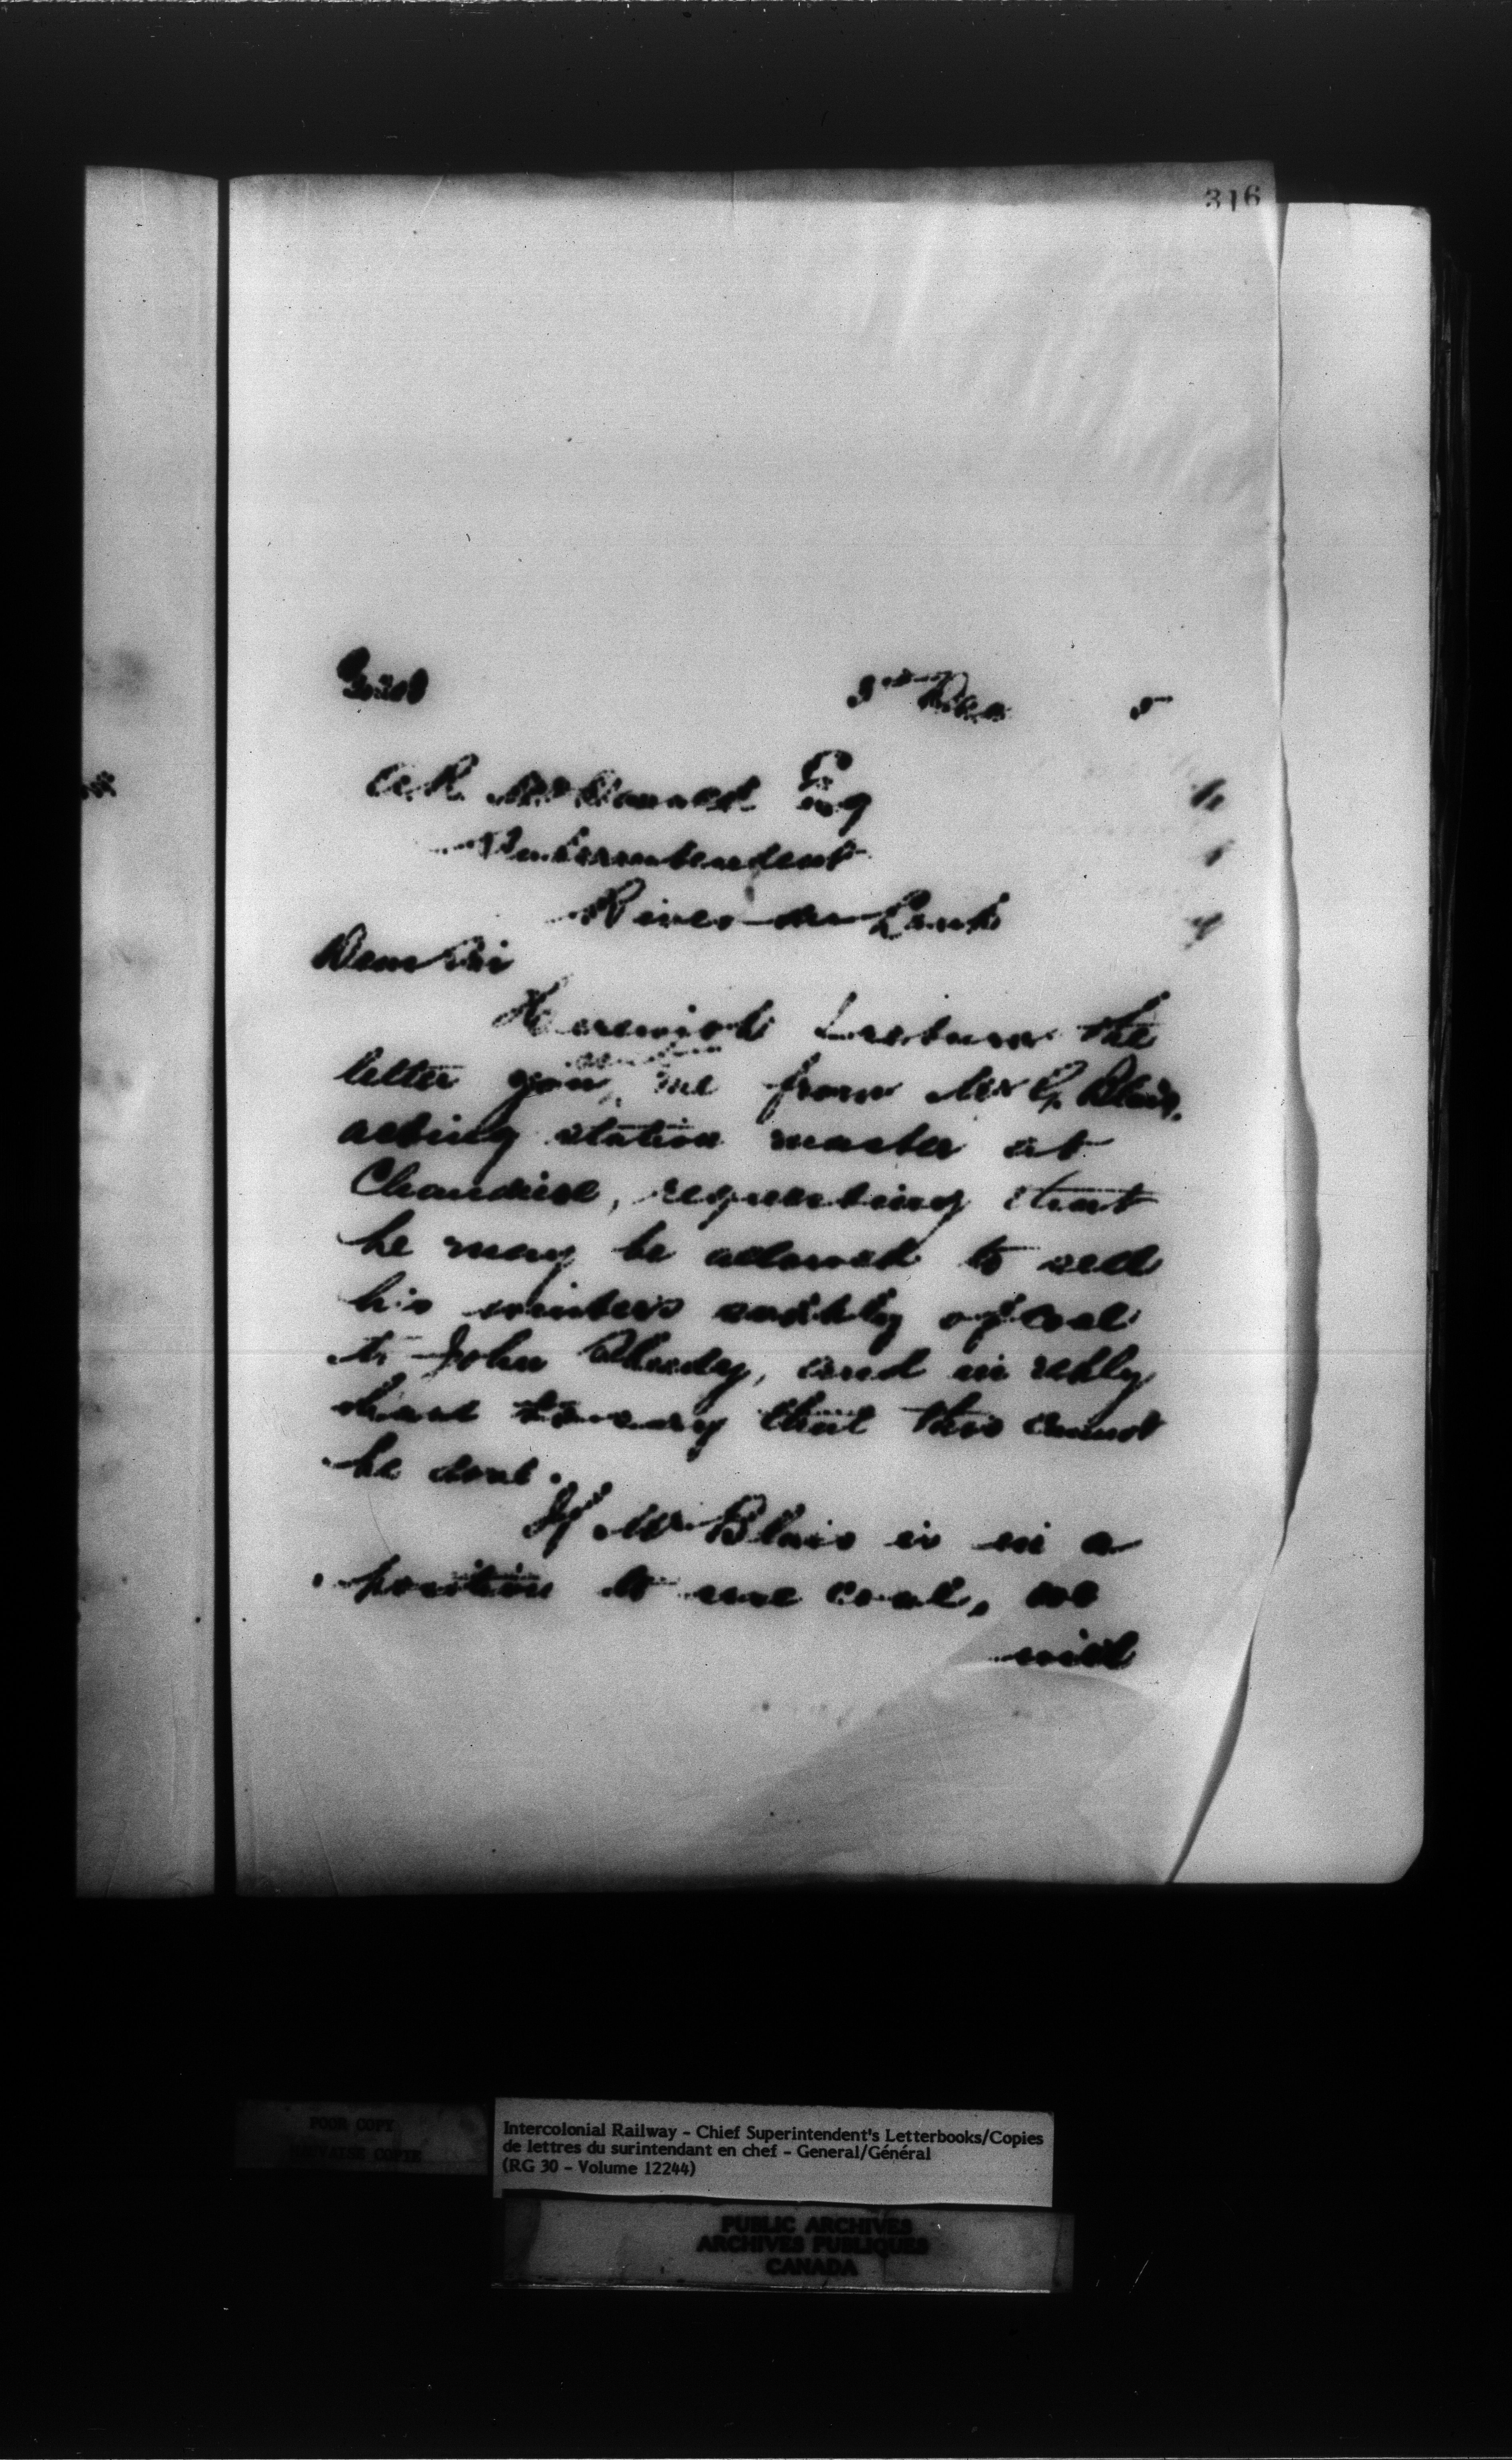 316
A.R. McDonald Esq
Superintendent
River du Loup
Dear Sir
Herewith I return the
letter you me from Mr G. Blais,
acting station master at
Chaudiere, requesting that
he may be allowed to sell
his winters supply of coal
to John Sheedy, and in reply
have to say that this cannot
be done.
If Mr Blais is in a
position to use coal, we
will
POOR COPY
Intercolonial Railway - Chief Superintendent's Letterbooks/Copies
de lettres du surintendant en chef - General/Général
(RG 30 - Volume 12244)
PUBLIC ARCHIVES
ARCHIVES PUBLIQUES
CANADA